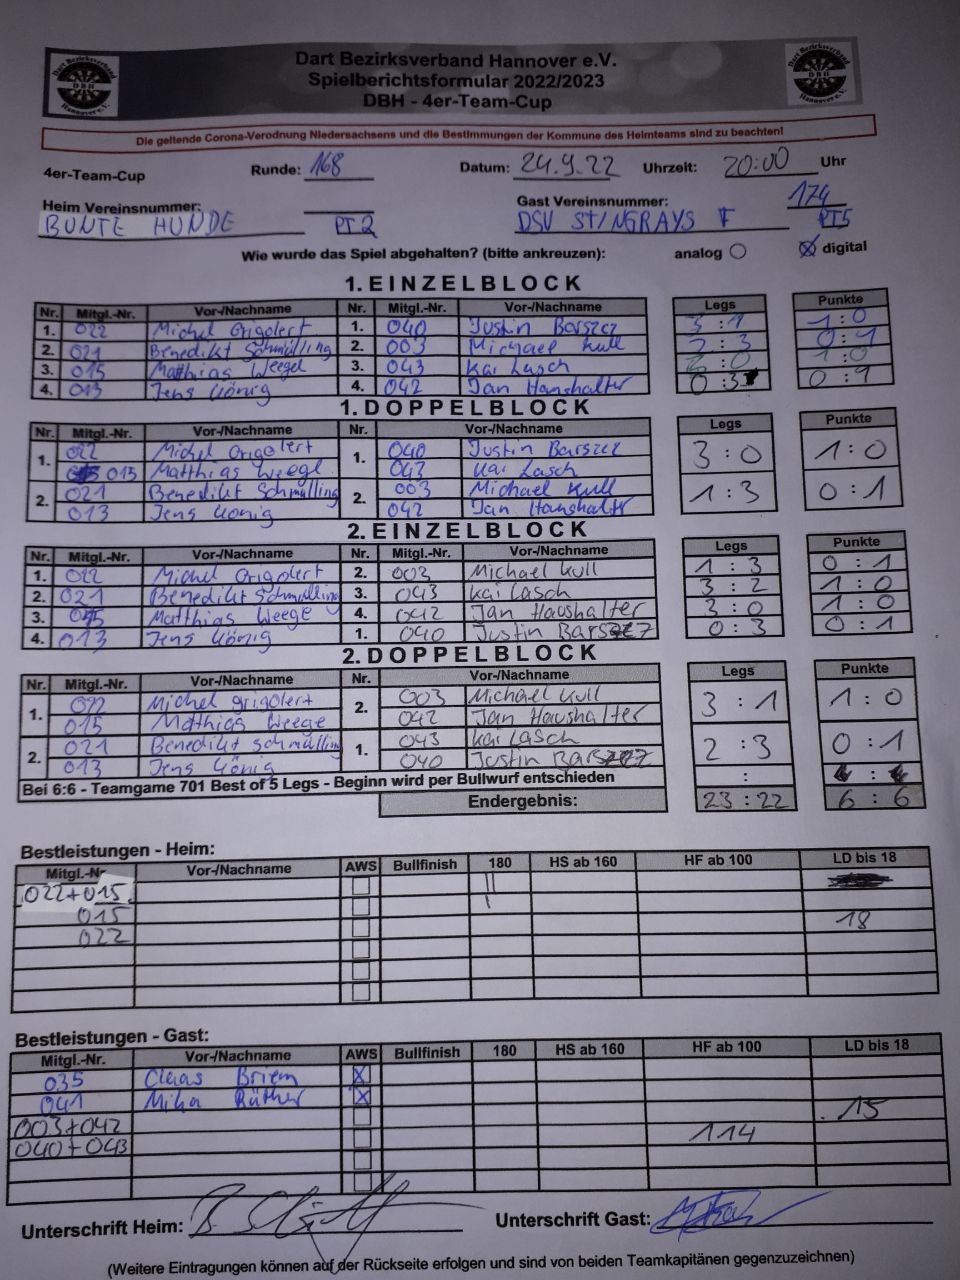 Dart Bezirksverband Hannover e.V.
Spielberichtsformular 2022/2023
DBH - 4er-Team-Cup
Die geltende Corona-Verodnung Niedersachsens und die Bestimmungen der Kommune des Heimteams sind zu beachten!
4er-Team-Cup Runde: 168 Datum: 24.9.22 Uhrzeit: 20:00 Uhr
Heim Vereinsnummer: Gast Vereinsnummer: 174
BUNTE HUNDE PT2 DSV STINGRAYS F PT5
Wie wurde das Spiel abgehalten? (bitte ankreuzen): analog digital
1. EINZELBLOCK
Nr. Mitgl.-Nr. Vor-/Nachname Nr. Mitgl.-Nr. Vor-/Nachname Legs Punkte
1. 022 Michel Grigolert 1. 040 Justin Barszcz 3:1 1:0
2. 021 Benedikt Schmülling 2. 003 Michael Kull 2:3 0:1
3. 015 Matthias Weegel 3. 043 Kai Lasch 3:0 1:0
4. 013 Jens König 4. 042 Jan Haushalter 0:3 0:1
1. DOPPELBLOCK
Nr. Mitgl.-Nr. Vor-/Nachname Nr. Vor-/Nachname Legs Punkte
1. 022 Michel Grigolert 1. 040 Justin Barszcz 3:0 1:0
015 Matthias Weegl 043 Kai Lasch
2. 021 Benedikt Schmülling 2. 003 Michael Kull 1:3 0:1
013 Jens König 042 Jan Haushalter
2. EINZELBLOCK
Nr. Mitgl.-Nr. Vor-/Nachname Nr. Mitgl.-Nr. Vor-/Nachname Legs Punkte
1. 022 Michel Grigolert 2. 003 Michael Kull 1:3 0:1
2. 021 Benedikt Schmülling 3. 043 Kai Lasch 3:2 1:0
3. 015 Matthias Weege 4. 042 Jan Haushalter 3:0 1:0
4. 013 Jens König 1. 040 Justin Barszcz 0:3 0:1
2. DOPPELBLOCK
Nr. Mitgl.-Nr. Vor-/Nachname Nr. Vor-/Nachname Legs Punkte
1. 022 Michel Grigolert 2. 003 Michael Kull 3:1 1:0
015 Matthias Weege 042 Jan Haushalter
2. 021 Benedikt Schmülling 1. 043 Kai Lasch 2:3 0:1
013 Jens König 040 Justin Barszcz
Bei 6:6 - Teamgame 701 Best of 5 Legs - Beginn wird per Bullwurf entschieden : :
Endergebnis: 23:22 6:6
Bestleistungen - Heim:
Mitgl.-Nr. Vor-/Nachname AWS Bullfinish 180 HS ab 160 HF ab 100 LD bis 18
022+015 ||
015 |
022 18
Bestleistungen - Gast:
Mitgl.-Nr. Vor-/Nachname AWS Bullfinish 180 HS ab 160 HF ab 100 LD bis 18
035 Claas Briem X
041 Mika Räther X
003+042 15
040+043 114
Unterschrift Heim: Unterschrift Gast:
(Weitere Eintragungen können auf der Rückseite erfolgen und sind von beiden Teamkapitänen gegenzuzeichnen)